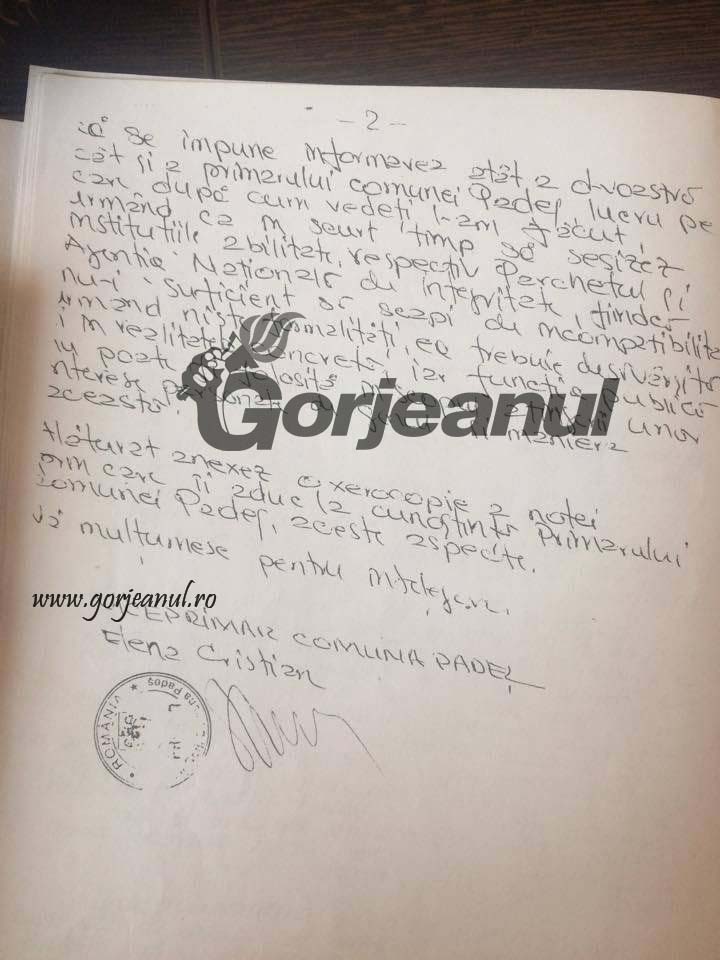 - 2 -
că se impune informarea atât a d-voastră
cât și a primarului comunei Padeș, lucru pe
care după cum vedeți l-am făcut,
urmând ca în scurt timp să sesizez
instituțiile abilitate, respectiv Parchetul și
Agenția Națională de Integritate,
nu-i suficient să scapi de incompatibilitate
urmând niște formalități, ea trebuie
în realitatea concretă, iar funcția publică
nu poate folosită
interese personale
aceasta.
Alăturat anexez o xerocopie a notei
prin care îi aduc la cunoștință Primarului
Comunei Padeș, aceste aspecte.
Vă mulțumesc pentru înțelegere.
www.gorjeanul.ro
VICEPRIMAR COMUNA PADEȘ
Elena Cristian
ROMÂNIA
Padeș
Gorjeanul